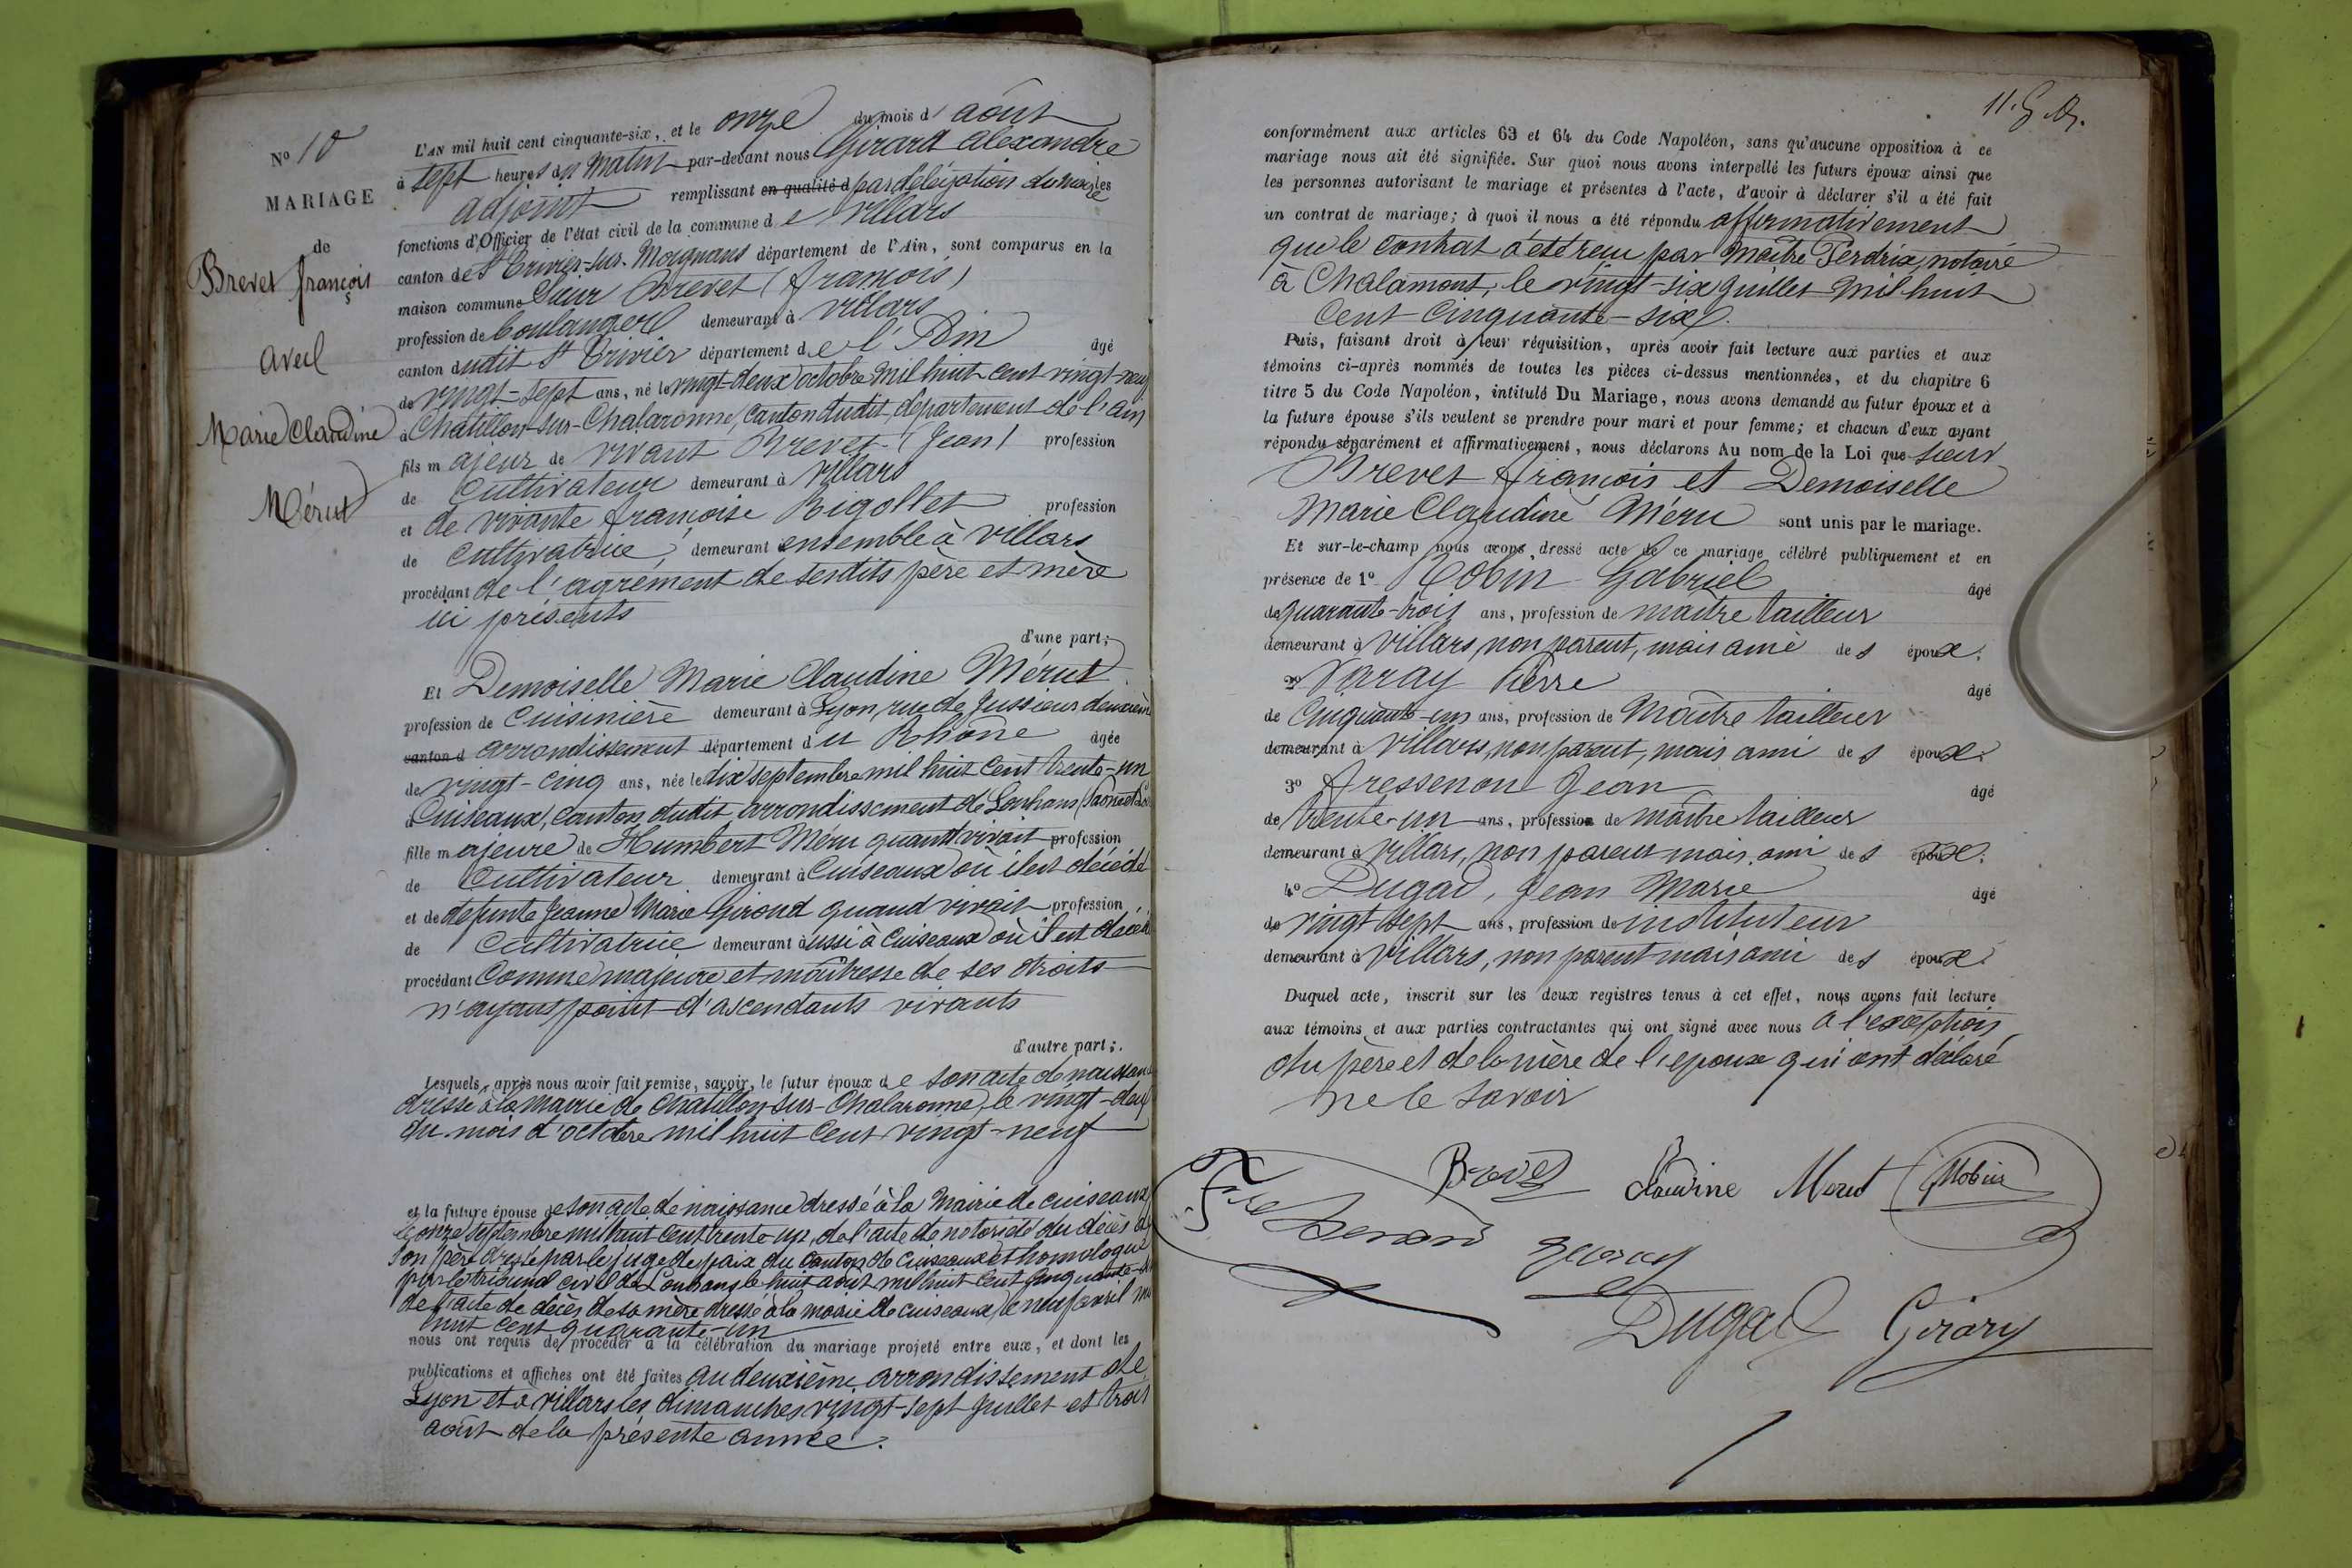 N° 10
MARIAGE
de
Brevet françois
avec
Marie Claudine
Mérut
L'AN mil huit cent cinquante-six, et le onze du mois d' août
à sept heures du matin par-devant nous Girard alexandre
adjoint remplissant en qualité d par délégation du maire les
fonctions d'Officier de l'état civil de la commune de villars
canton de St Trivier-sur-Moignans département de l'Ain, sont comparus en la
maison commune Sieur Brevet (françois)
profession de boulanger demeurant à villars
canton dudit St Trivier département de l'Ain âgé
de vingt-sept ans, né le vingt-deux octobre mil huit cent vingt-neuf
à Châtillon-sur-Chalaronne, canton dudit, département de l'ain
fils majeur de vivant Brevet (Jean) profession
de Cultivateur demeurant à villars
et de vivante françoise Rigollet profession
de cultivatrice, demeurant ensemble à villars
procédant de l'agrément de sesdits père et mère
ici présents
d'une part;
Et Demoiselle Marie Claudine Mérut
profession de Cuisinière demeurant à Lyon, rue de Jussieux deuxième
canton d arrondissement département du Rhône âgée
de vingt-cinq ans, née le dix septembre mil huit cent trente-un
à Cuiseaux, canton dudit, arrondissement de Louhans (Saône et L
fille majeure de Humbert Méru quand vivait profession
de Cultivateur demeurant à Cuiseaux où il est décédé
et de defunte Jeanne Marie Giroud quand vivait profession
de Cultivatrice demeurant aussi à Cuiseaux où il est décédé
procédant Comme majeure et maîtresse de ses droits
n'ayant point d'ascendants vivants
d'autre part;
Lesquels, après nous avoir fait remise, savoir, le futur époux de son acte de naissance
dressé à la mairie de Châtillon-sur-Chalaronne, le vingt-deux
du mois d'octobre mil huit cent vingt-neuf
et la future épouse de son acte de naissance dressé à la Mairie de cuiseaux
le onze septembre mil huit cent trente-un, de l'acte de notoriété du décès de
son père dressé par le juge de paix du Canton de Cuiseaux et homologué
par le tribunal civil de Louhans le huit août mil huit cent cinquante-
de l'acte de décès de sa mère dressé à la mairie de cuiseaux, le neuf avril mil
huit cent quarante-un
nous ont requis de procéder à la célébration du mariage projeté entre eux, et dont les
publications et affiches ont été faites au deuxième arrondissement de
Lyon et à villars les dimanches vingt-sept juillet et trois
août de la présente année.
conformément aux articles 63 et 64 du Code Napoléon, sans qu'aucune opposition à ce
mariage nous ait été signifiée. Sur quoi nous avons interpellé les futurs époux ainsi que
les personnes autorisant le mariage et présentes à l'acte, d'avoir à déclarer s'il a été fait
un contrat de mariage; à quoi il nous a été répondu affirmativement
que le contrat a été reçu par Maître Perdrix, notaire
à Chalamont, le vingt-six juillet mil huit
Cent Cinquante-six.
Puis, faisant droit à leur réquisition, après avoir fait lecture aux parties et aux
témoins ci-après nommés de toutes les pièces ci-dessus mentionnées, et du chapitre 6
titre 5 du Code Napoléon, intitulé Du Mariage, nous avons demandé au futur époux et à
la future épouse s'ils veulent se prendre pour mari et pour femme; et chacun d'eux ayant
répondu séparément et affirmativement, nous déclarons Au nom de la Loi que sieur
Brevet françois et Demoiselle
Marie Claudine Méru sont unis par le mariage.
Et sur-le-champ nous avons dressé acte de ce mariage célébré publiquement et en
présence de 1° Gabriel âgé
de quarante-trois ans, profession de maître tailleur
demeurant à villars, non parent, mais ami des époux;
2° Varay Pierre âgé
de Cinquante-un ans, profession de Maître tailleur
demeurant à villars, non parent, mais ami des époux.
3° fressenon Jean âgé
de trente-un ans, profession de maître tailleur
demeurant à villars, non parent mais ami des époux;
4° Dugad, Jean Marie âgé
de vingt sept ans, profession de instituteur
demeurant à Villars, non parent mais ami des époux.
Duquel acte, inscrit sur les deux registres tenus à cet effet, nous avons fait lecture
aux témoins et aux parties contractantes qui ont signé avec nous à l'exception
du père et de la mère de l'epoux qui ont déclaré
ne le savoir
Brevet Claudine Merut
Dugad Girard